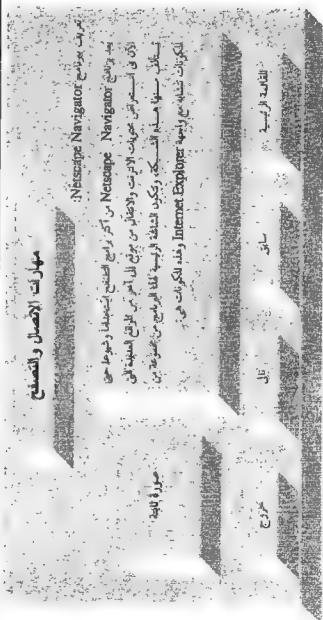 مهارات الاتصال والتصفح
تعريف ببرنامج Netscape Navigator:
يعد برنامج Netscape Navigator من أكثر برامج التصفح استخداما وشيوعا حتى
الآن فى استعراض محتويات الانترنت والانتقال من موقع إلى آخر من المواقع المختلفة التى
تتألف منها هذه الشبكة، وتتكون الشاشة الرئيسية لهذا البرنامج من مجموعة من
المكونات تتشابه مع واجهة Internet Explorer وهذه المكونات هى:
صورة ثابتة
القائمة الرئيسية
سابق
تالى
خروج